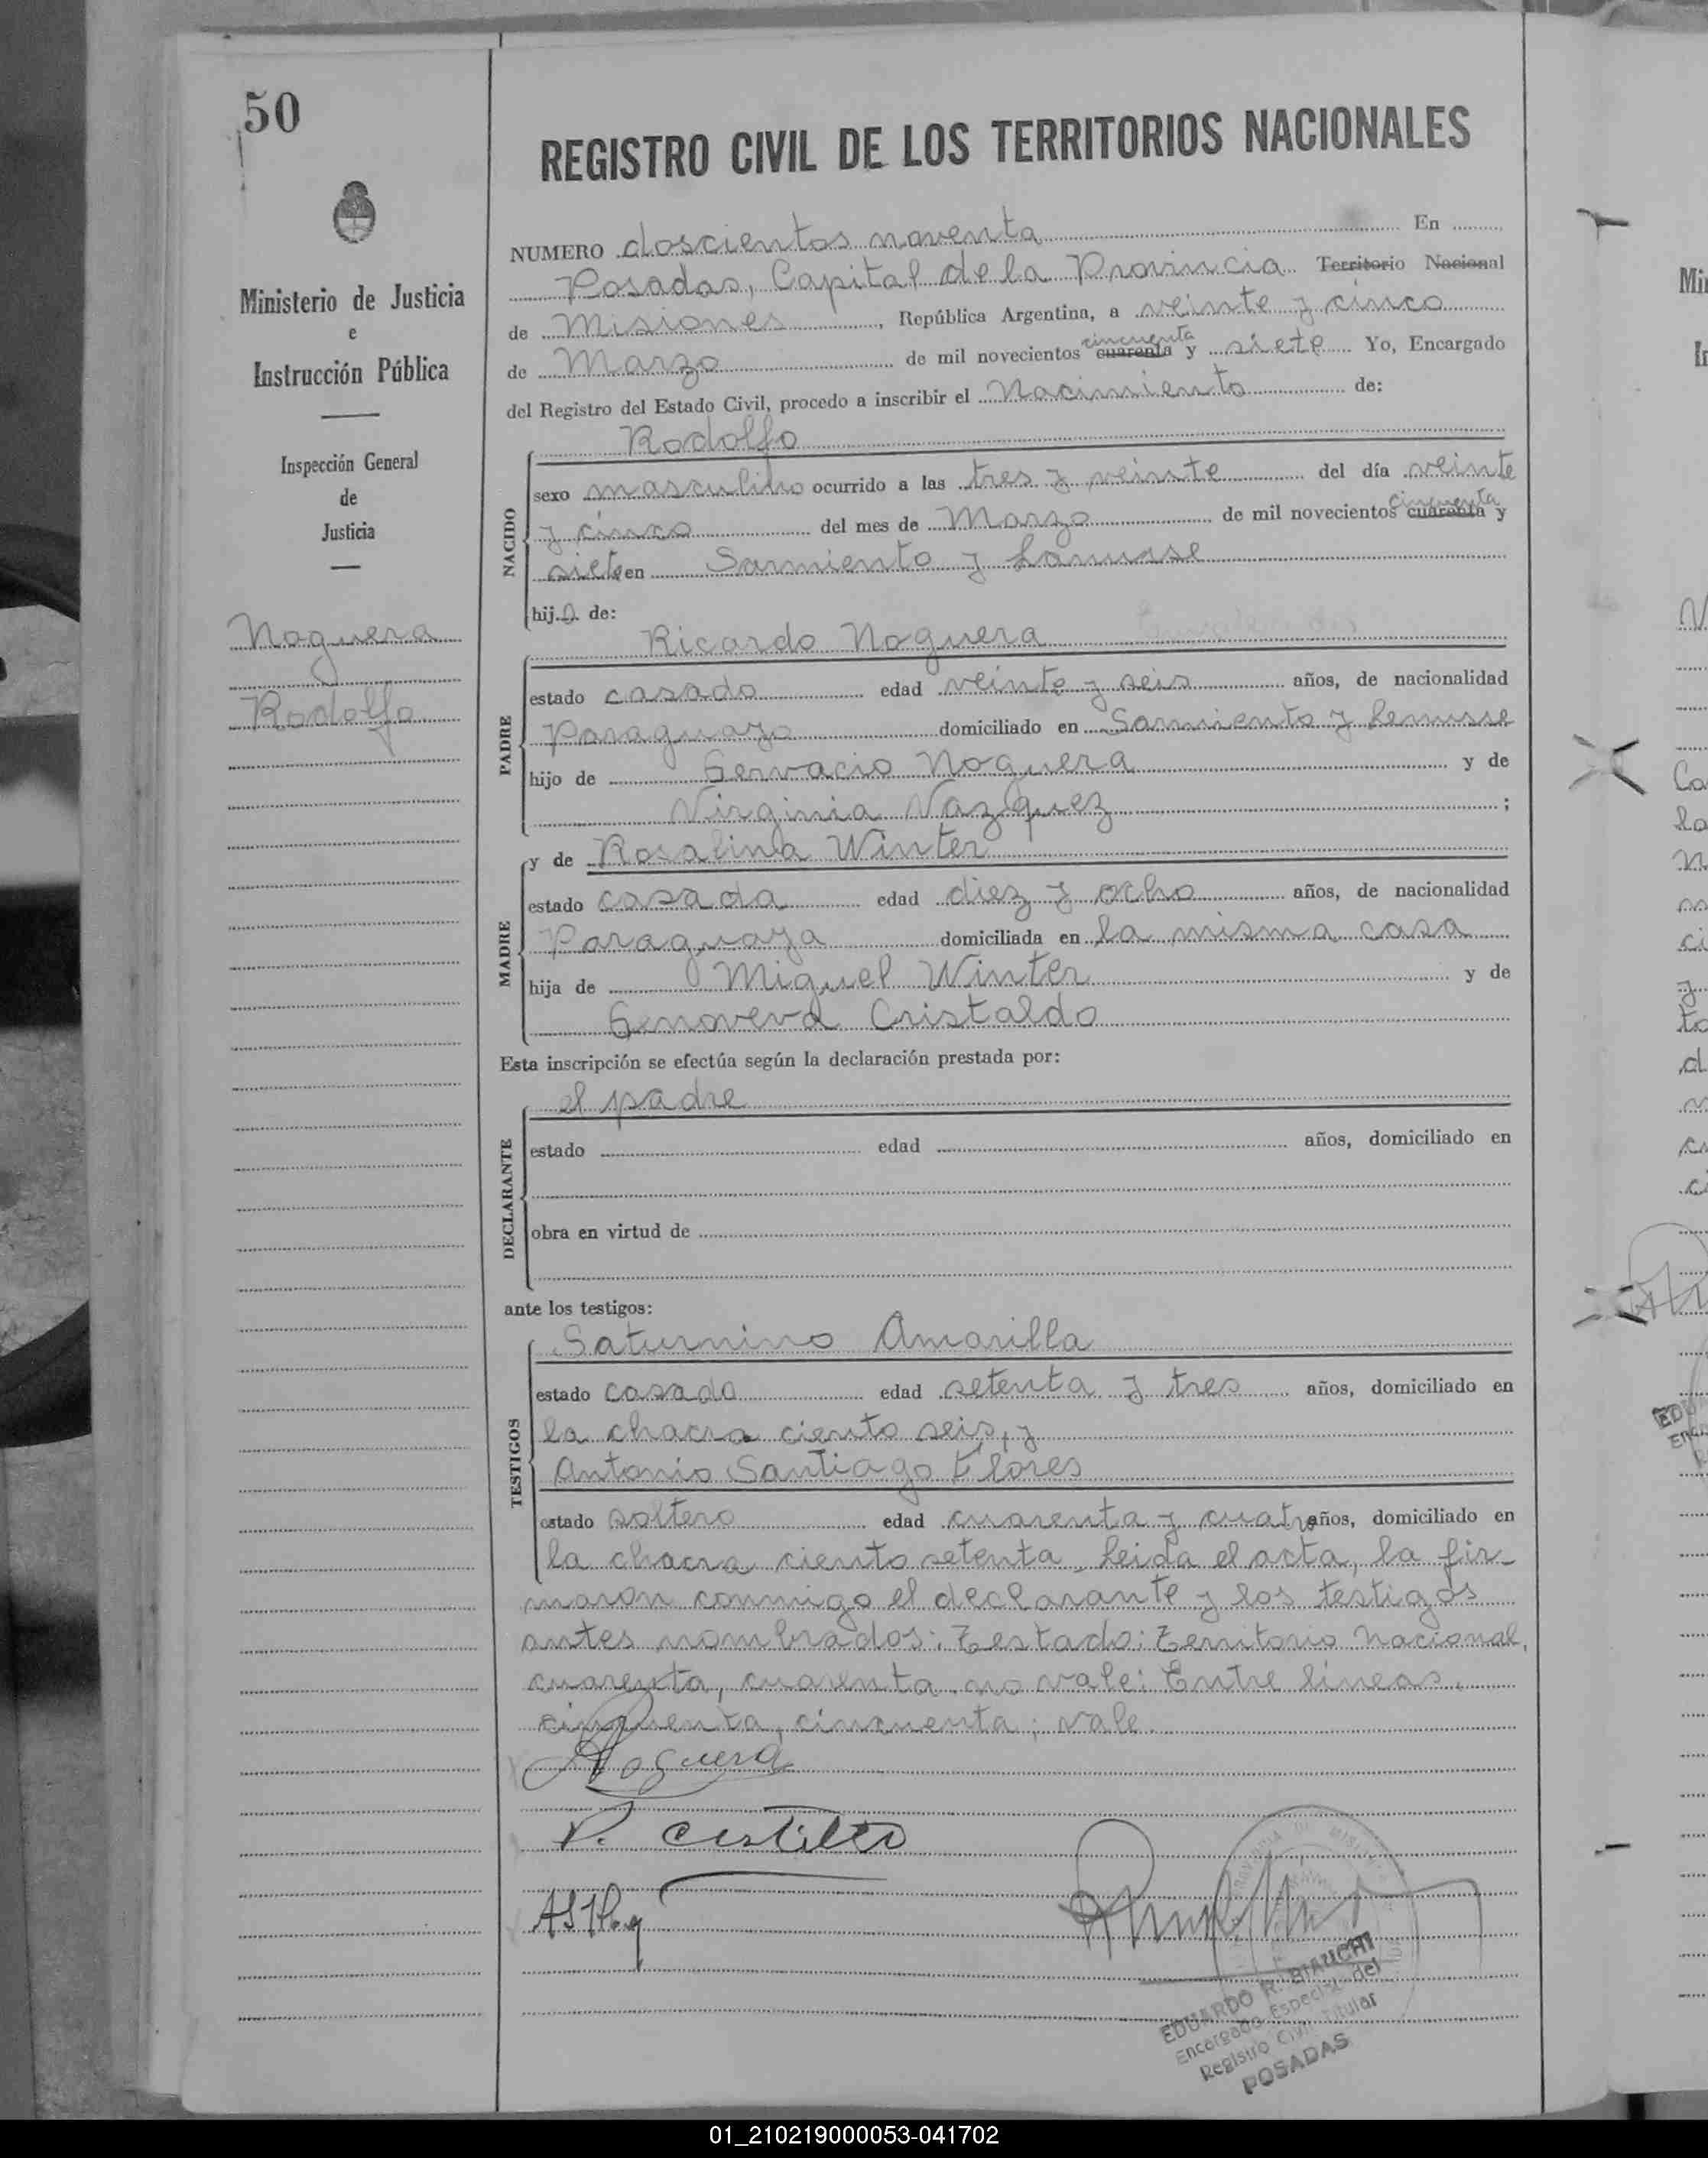 50
REGISTRO CIVIL DE LOS TERRITORIOS NACIONALES
Ministerio de Justicia
e
Instrucción Pública
Inspección General
de
Justicia
Noguera
Rodolfo
NUMERO doscientos noventa En
Posadas, Capital de la Provincia Territorio Nacional
de Misiones, República Argentina, a veinte y cinco
cincuenta
de Marzo de mil novecientos cuarenta y siete Yo, Encargado
del Registro del Estado Civil, procedo a inscribir el Nacimiento de:
Rodolfo
NACIDO
sexo masculino ocurrido a las tres y veinte del día veinte
cincuenta
y cinco del mes de Marzo de mil novecientos cuarenta y
siete en Sarmiento y Lanusse
hijo de:
Ricardo Noguera
PADRE
estado casado edad veinte y seis años, de nacionalidad
Paraguayo domiciliado en Sarmiento y Lanusse
hijo de Gervacio Noguera y de
Virginia Vazquez ;
y de Rosalina Winter
MADRE
estado casada edad diez y ocho años, de nacionalidad
Paraguaya domiciliada en la misma casa
hija de Miguel Winter y de
Genoveva Cristaldo
Esta inscripción se efectúa según la declaración prestada por:
el padre
DECLARANTE
estado edad años, domiciliado en
obra en virtud de
ante los testigos:
Saturnino Amarilla
TESTIGOS
estado casado edad setenta y tres años, domiciliado en
la chacra ciento seis, y
Antonio Santiago Flores
estado soltero edad cuarenta y cuatro años, domiciliado en
la chacra ciento setenta. Leida el acta, la fir-
maron conmigo el declarante y los testigos
antes nombrados: Testado: Territorio Nacional,
cuarenta, cuarenta no vale: Entre lineas,
cincuenta, cincuenta: vale.
Noguera
EDUARDO R. BIANCHI
Encargado Especial del
Registro Civil Titular
POSADAS
01_210219000053-041702